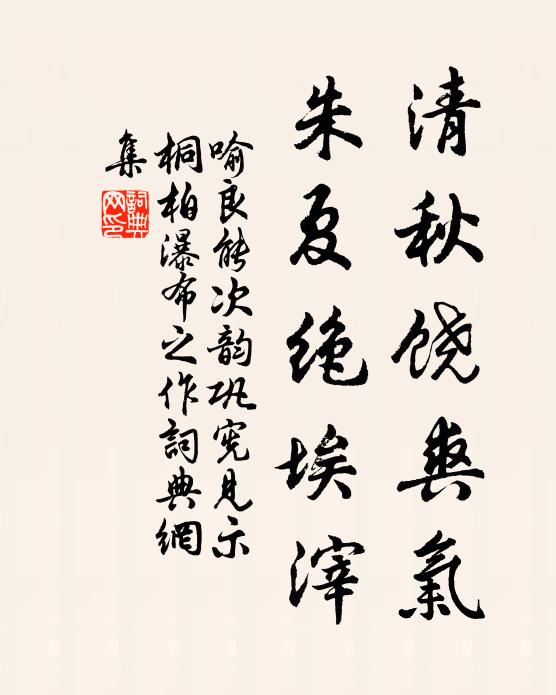 清秋饶爽氣
朱夏绝埃滓
喻良能次韵巩宪見示
桐柏瀑布之作詞典網
集
詞典
网印